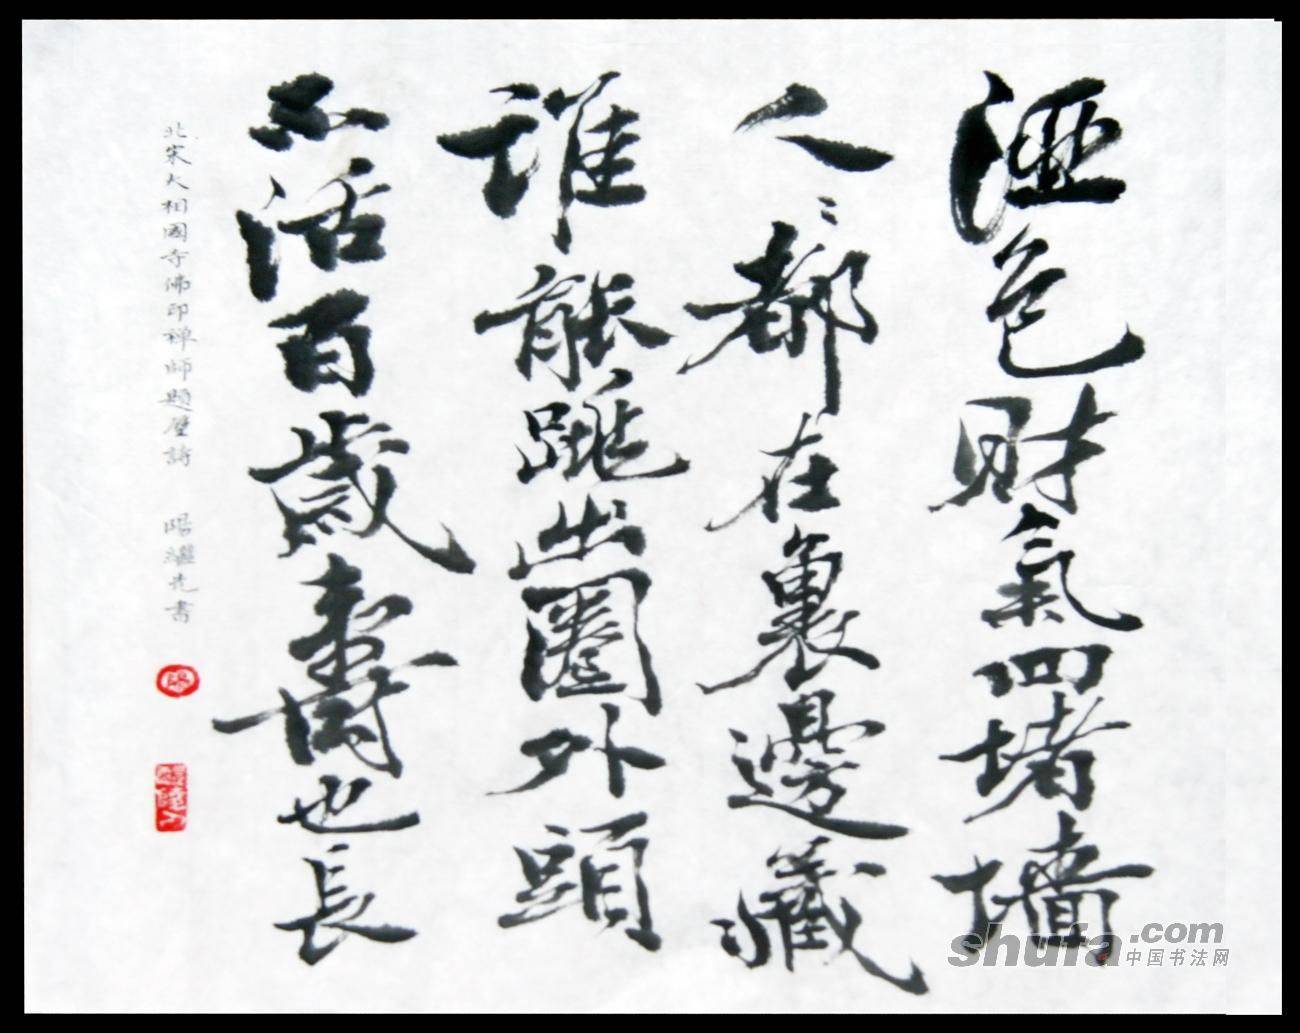 酒色財氣四堵墻
人々都在裏邊藏
誰能跳出圈外頭
不活百歲壽也長
北宋大相國寺佛印禅師題壁詩 陽繼先書
shufa.com
中国书法网